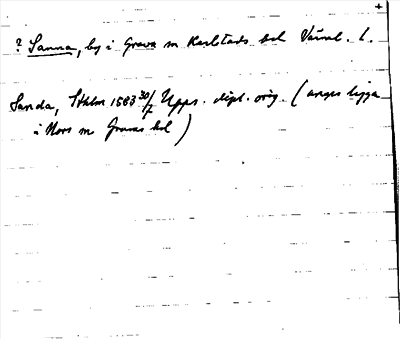 ? Sanna, by i Grava sn Karlstads hd Värml. l.
Sanda, Sthlm 1583 30/7 Upps. dipl. orig. (anges ligga
i Nors sn Grums hd)